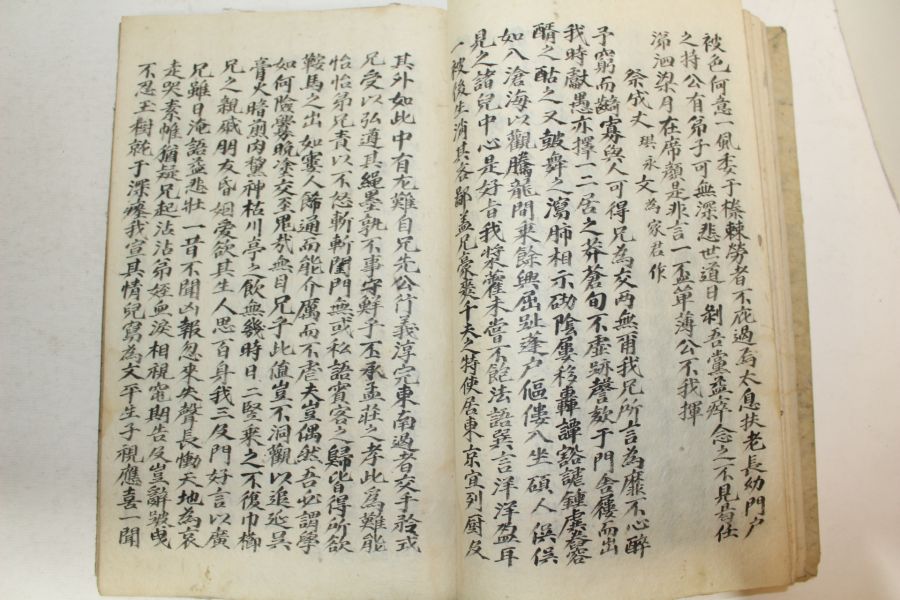 被色何意一佩委于榛棘勞者不庇過為太息扶老長幼門戶
之持公有弟子可無深悲世道日剝吾黨益瘁念之不見昔仕
涕泗染月在席顏是非言一盃單薄公不我揮
祭成丈 琪永文 為家君作
予窮而齬寡與人可得兄為交兩無甫我兄所言為靡不心醉
我時獻愚亦擇一二居之莽蒼旬不虛跡謦欬于門舍屨而出
醑之酤之又鼓舞之瀉肺相示砌陰屢移轟譚豁謔鍾虞春容
如入滄海以觀騰龍間乘餘興屈趾蓬戶傴僂入坐碩人俁俁
見之諸兒中心是好旨我粱藿未嘗不飽法語巽言洋洋盈耳
一被後生消其吝鄙蓋兄豪邁千夫之特使居東京宜列厨及
其外如此中有尤難自兄先公行義淳完東南過者交手矜式
兄受以弘道其繩墨孰不事守鮮子丕承孟莊之孝此為難能
怡怡弟兄責以不怒斬斬閨門無或私語賓客之歸皆得所欲
鞍馬之出如寠人歸通而能介厲而不虐夫豈偶然吾必謂學
如何險釁晚塗交至鬼哉無目兄子此値豈不洞觀以追延吳
膏火暗煎肉槁神枯川亭之飲無幾時日二竪乘之不復巾櫛
兄之親戚朋友昏姻愛欲其生人思百身我三反門好言以廣
兄雖日淹語益悲壯一昔不聞凶報忽來失聲長慟天地為哀
走哭素帷猶疑兄起沾沾弟姪血淚相視窀期告及豈辭跛曳
不忍玉樹就于深瘞我宣其情兒寫為文平生子視應喜一聞